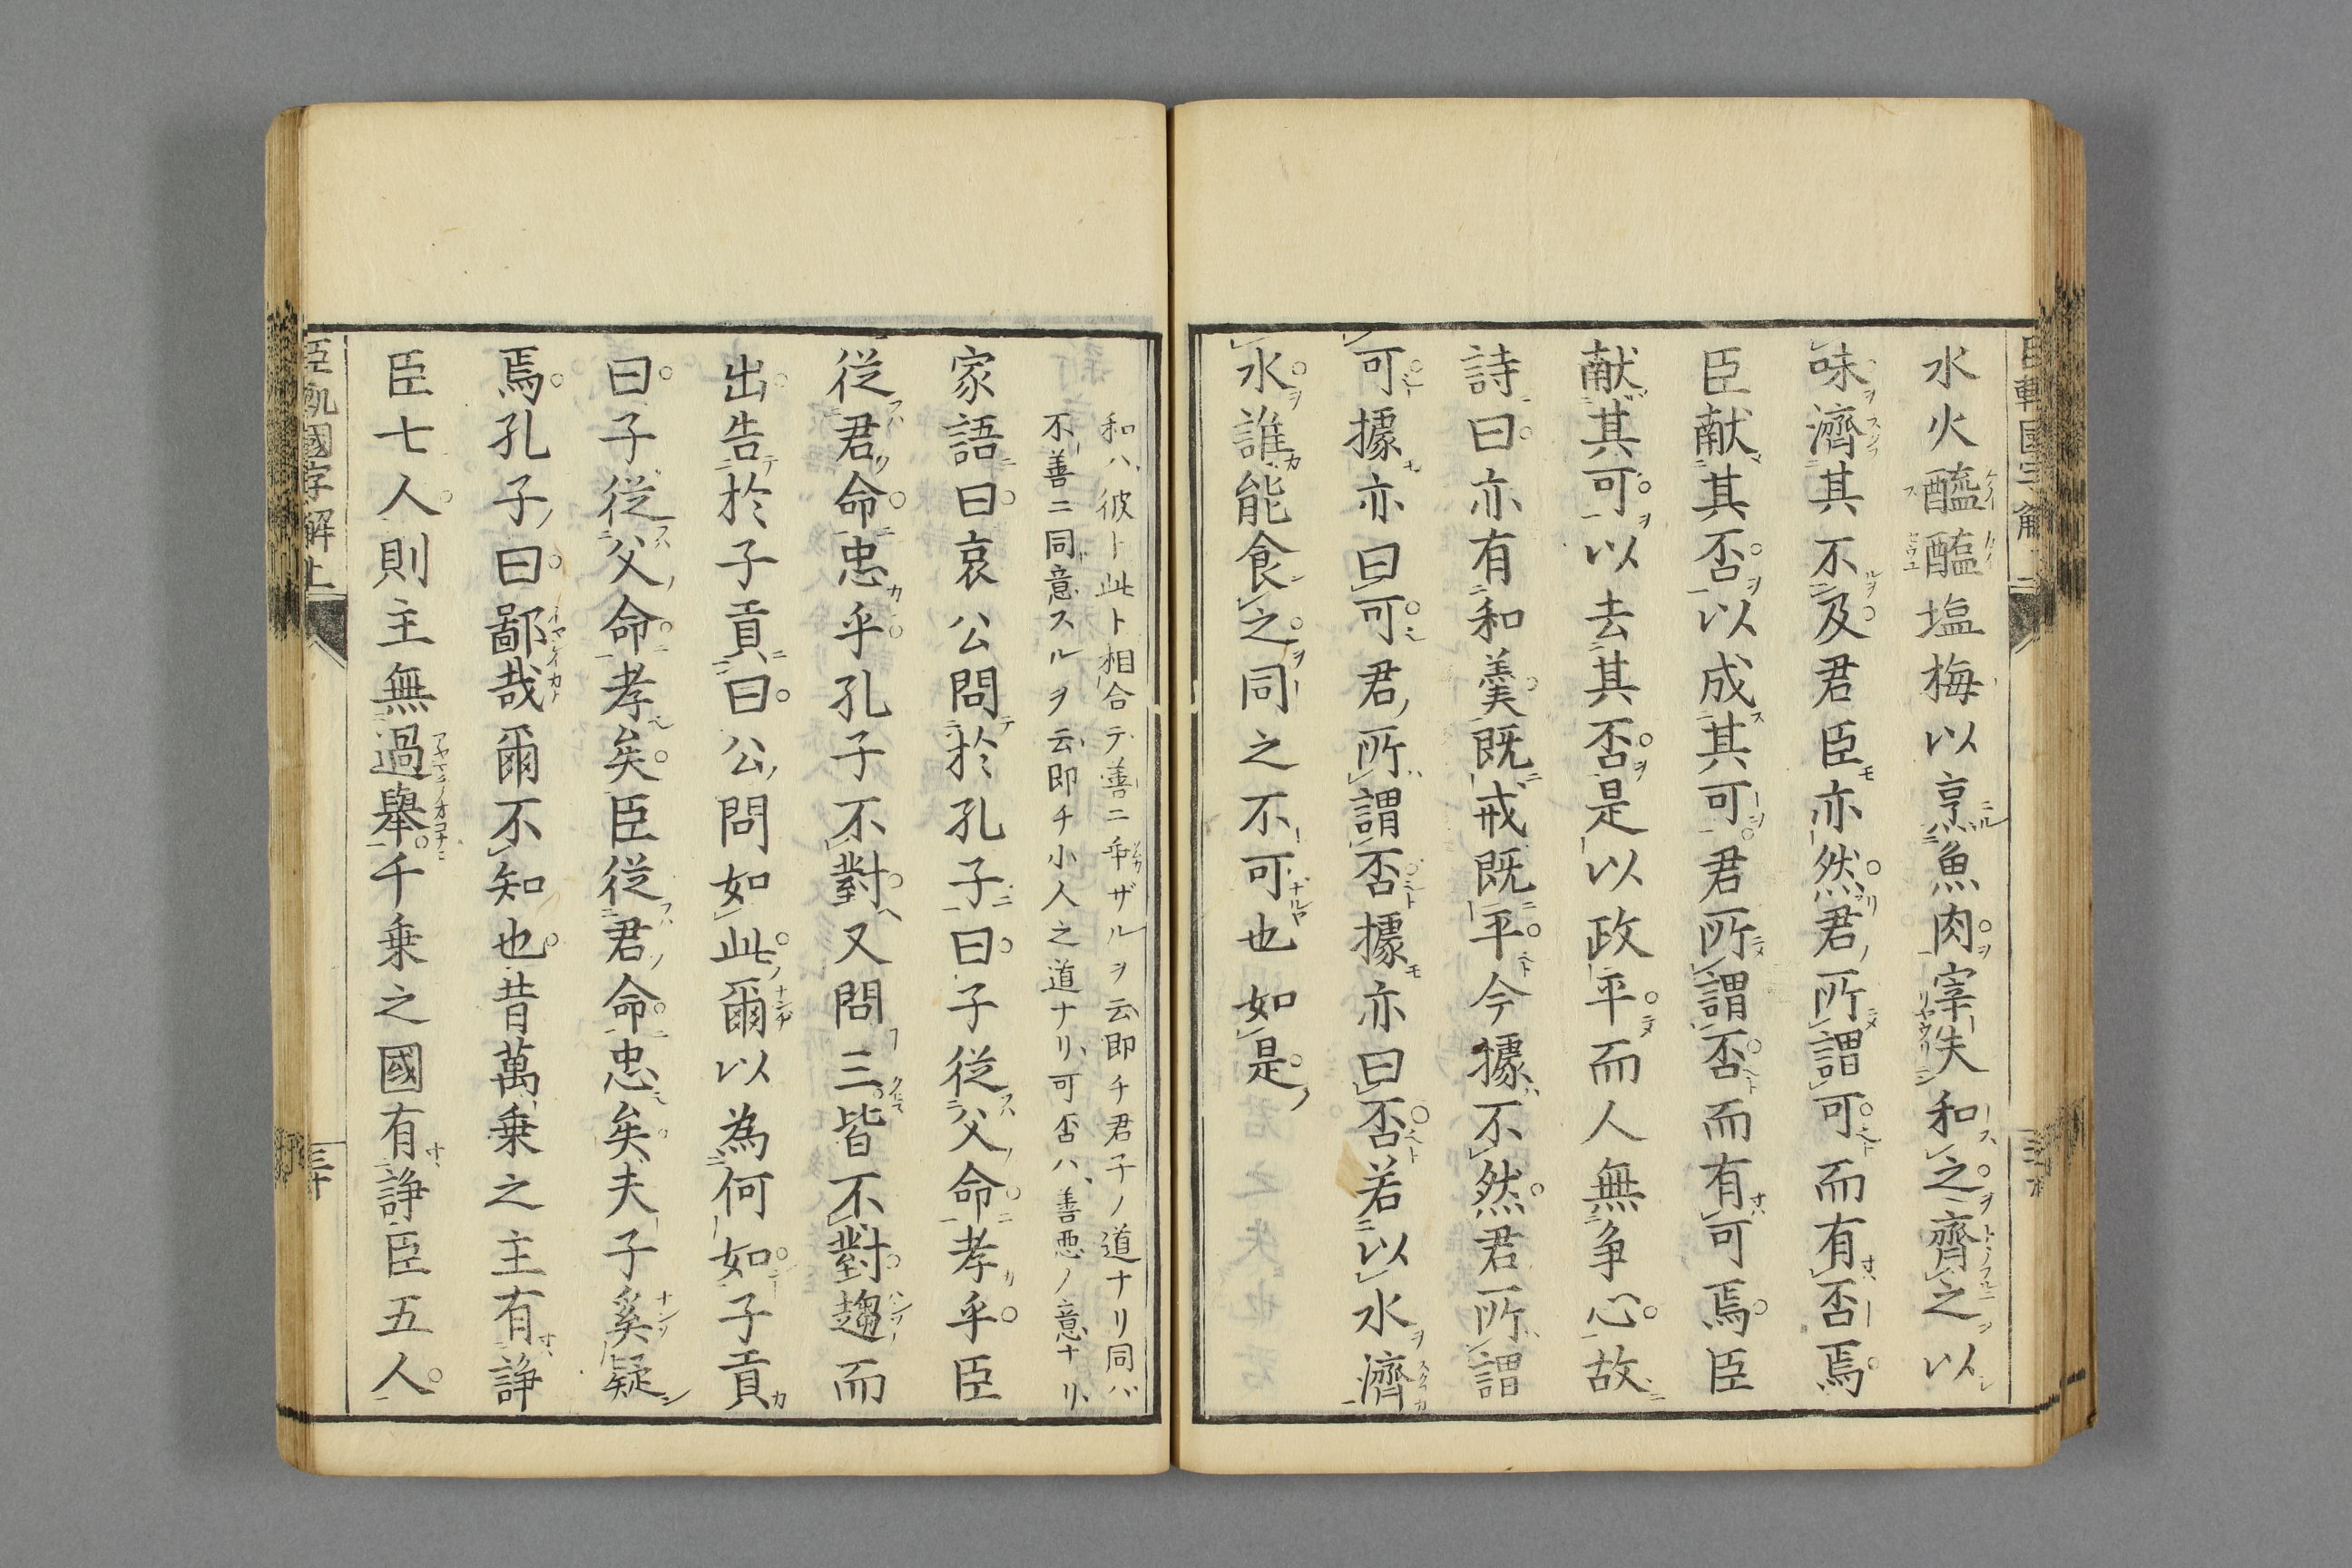 水火醯醢塩梅以烹魚肉宰夫和之齊之以
味濟其不及君臣亦然君所謂可而有否焉
臣献其否以成其可君所謂否而有可焉臣
献其可以去其否是以政平而人無争心故
詩曰亦有和羹既戒既平今據不然君所謂
可據亦曰可君所謂否據亦曰否若以水濟
水誰能食之同之不可也如是
和ハ彼ト此ト相合テ善ニ乖ザルヲ云即チ君子ノ道ナリ同ハ
不善ニ同意スルヲ云即チ小人之道ナリ可否ハ善悪ノ意ナリ
家語曰哀公問於孔子曰子従父命孝乎臣
従君命忠乎孔子不對又問三皆不對趨而
出告於子貢曰公問如此爾以為何如子貢
曰子従父命孝矣臣従君命忠矣夫子奚疑
焉孔子曰鄙哉爾不知也昔萬乗之主有諍
臣七人則主無過舉千乗之國有諍臣五人
臣軌國字解上
三十